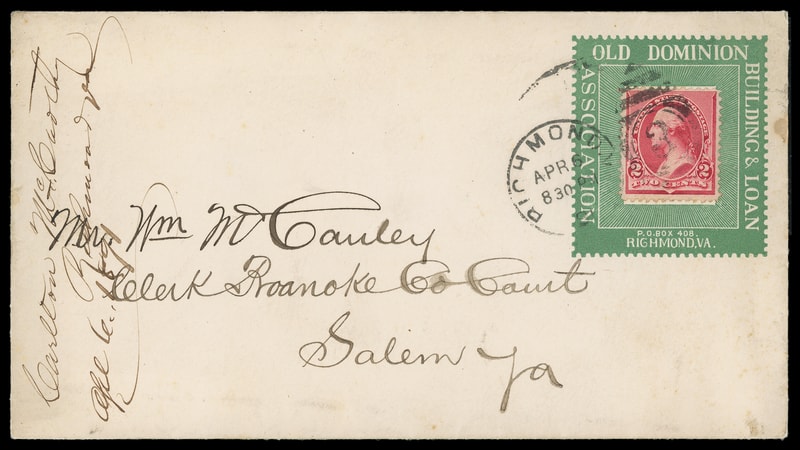 OLD DOMINION
BUILDING & LOAN
ASSOCIATION
P.O. BOX 408.
RICHMOND, VA.
2 2
TWO CENTS
RICHMOND
APR 6
8 30 P
Mr. Wm McCauley
Clerk Roanoke Co Court
Salem Va
Carlton McCarthy
Richmond Va